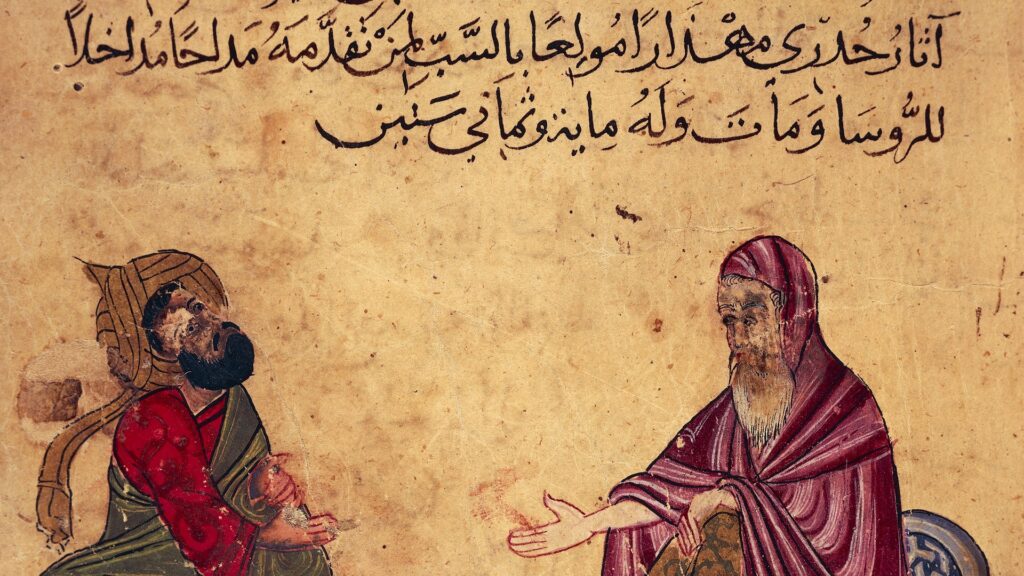 آثار جدري مهذارًا مولعًا بالسَّبِّ لِمَنْ تقدَّمهُ مداحًا مُداخلاً
للرُّوسَا وَمَاتَ وَلَهُ ماية وثماني سَنين